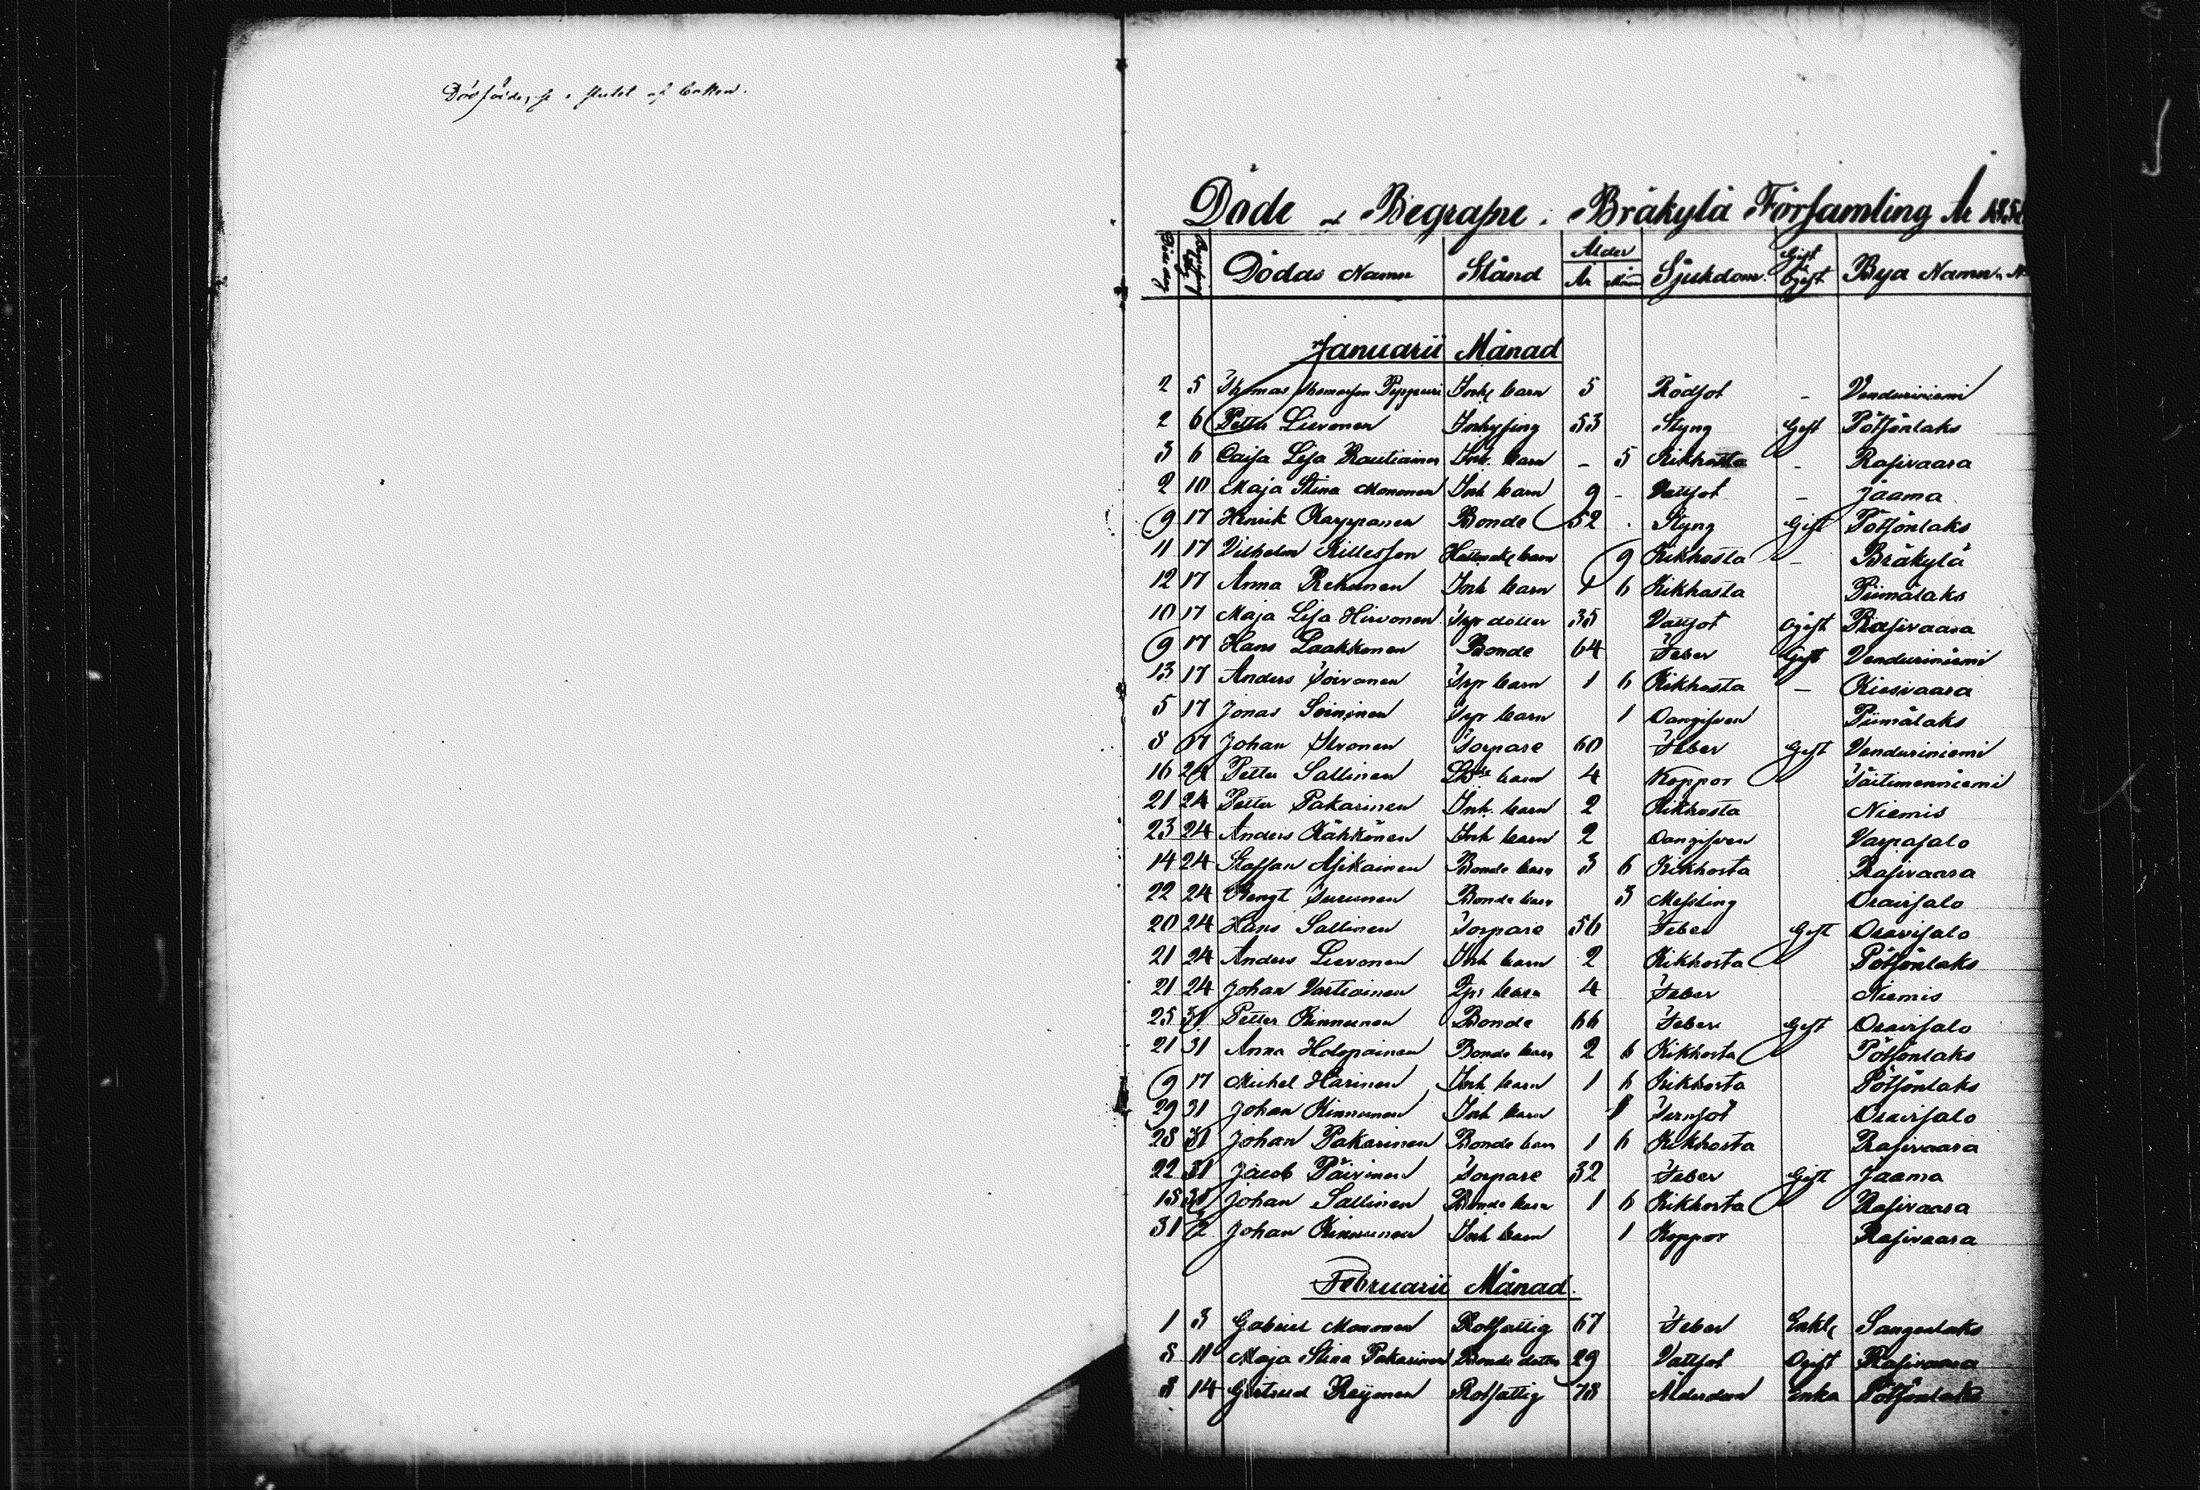 Dödfödde, se i slutet af boken.
Döde och Begrafne i Bräkylä Församling År 185
Döds dag Begrafnings dag Dödas Namn Stånd Ålder År Mån Sjukdom Gift Ogift Bya Namn
Januarii Månad
2 5 Thomas Thomasson Pippuri Inh barn 5 Rödsot - Venduriniemi
2 6 Petter Lievonen Inhysing 53 Styng Gift Pötsönlaks
3 6 Caisa Lisa Rautiainen Inh. barn - 5 Kikhosta - Rasivaara
2 10 Maja Stina Mononen Inh barn 9 - Vattsot - Jaama
9 17 Henrik Karppanen Bonde 52 Styng Gift Pötsönlaks
11 17 Vilhelm Killesson barn 9 Kikhosta - Bräkylä
12 17 Anna Rekunen Inh barn 1 6 Kikhosta Piimälaks
10 17 Maja Lisa Hirvonen Trp dotter 35 Vattsot Ogift Rasivaara
9 17 Hans Laakkonen Bonde 64 Feber Gift Venduriniemi
13 17 Anders Toivanen Trp barn 1 6 Kikhosta - Kiesvaara
5 17 Jonas Soininen Trp barn 1 Oangifven Piimälaks
8 17 Johan Ilvonen Torpare 60 Feber Gift Venduriniemi
16 24 Petter Sallinen barn 4 Koppor Täitimenniemi
21 24 Petter Pakarinen Inh. barn 2 Kikhosta Niemis
23 24 Anders Kähkönen Inh barn 2 Oangifven Varpasalo
14 24 Staffan Asikainen Bonde barn 3 6 Kikhosta Rasivaara
22 24 Bengt Turunen Bonde barn 3 Messling Oravisalo
20 24 Hans Sallinen Torpare 56 Feber Gift Oravisalo
21 24 Anders Lievonen Inh barn 2 Kikhosta Pötsönlaks
21 24 Johan Vartiainen Trp barn 4 Feber Niemis
25 31 Petter Kinnunen Bonde 66 Feber Gift Oravisalo
21 31 Anna Holopainen Bonde barn 2 6 Kikhosta Pötsönlaks
9 17 Michel Härinen Inh barn 1 6 Kikhosta Pötsönlaks
29 31 Johan Kinnunen Inh barn 1 Oravisalo
28 31 Johan Pakarinen Bonde barn 1 6 Kikhosta Rasivaara
22 31 Jacob Päivinen Torpare 32 Feber Gift Jaama
18 31 Johan Sallinen Bonde barn 1 6 Kikhosta Rasivaara
31 2 Johan Kinnunen Inh barn 1 Koppor Rasivaara
Februarii Månad.
1 3 Gabriel Mononen Rotfattig 67 Feber Enkl Sangenlaks
8 11 Maja Stina Pakarinen Bonde dotter 29 Vattsot Ogift Rasivaara
8 14 Gertrud Reijonen Rotfattig 78 Ålderdom Enka Pötsönlaks